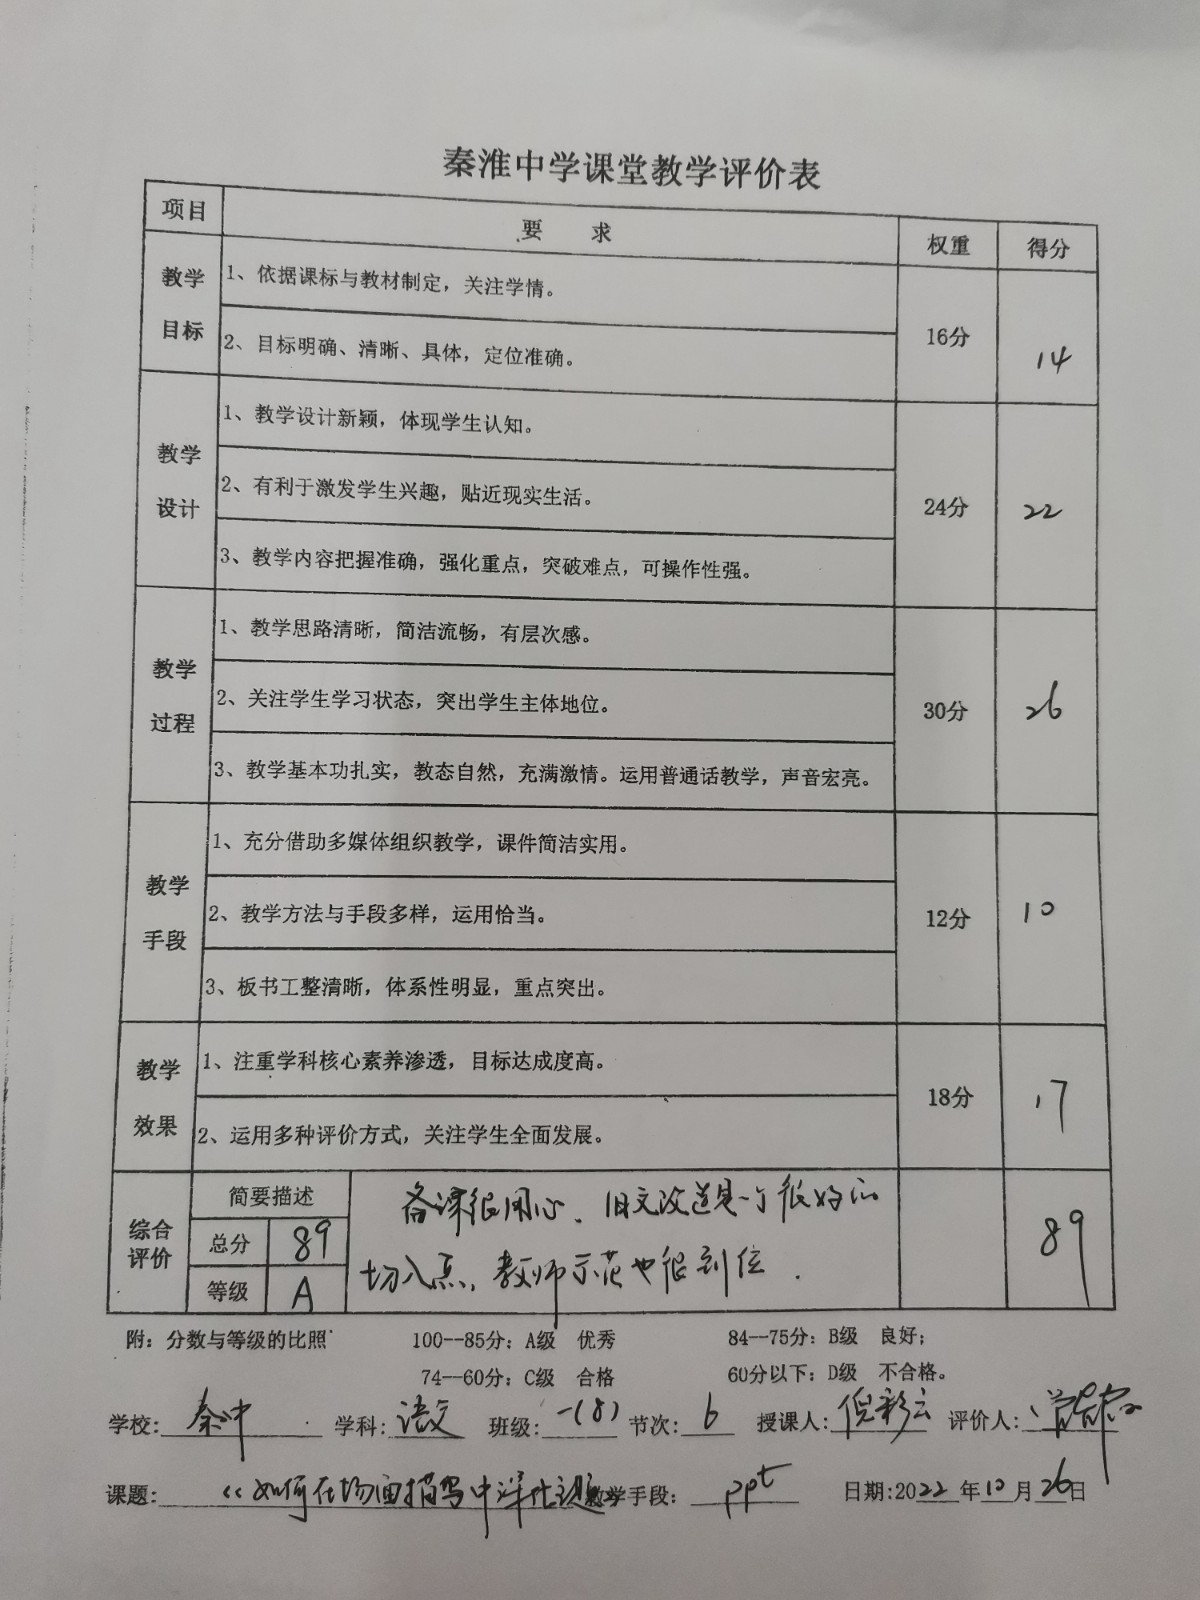 秦淮中学课堂教学评价表
项目 要 求 权重 得分
教学目标
1、依据课标与教材制定，关注学情。
2、目标明确、清晰、具体，定位准确。
16分 14
教学设计
1、教学设计新颖，体现学生认知。
2、有利于激发学生兴趣，贴近现实生活。
3、教学内容把握准确，强化重点，突破难点，可操作性强。
24分 22
教学过程
1、教学思路清晰，简洁流畅，有层次感。
2、关注学生学习状态，突出学生主体地位。
3、教学基本功扎实，教态自然，充满激情。运用普通话教学，声音宏亮。
30分 26
教学手段
1、充分借助多媒体组织教学，课件简洁实用。
2、教学方法与手段多样，运用恰当。
3、板书工整清晰，体系性明显，重点突出。
12分 10
教学效果
1、注重学科核心素养渗透，目标达成度高。
2、运用多种评价方式，关注学生全面发展。
18分 17
综合评价
简要描述
总分 89
等级 A
备课很用心、旧文改造是一个很好的
切入点，教师示范也很到位．
89
附：分数与等级的比照 100--85分：A级 优秀 84--75分：B级 良好；
74--60分：C级 合格 60分以下：D级 不合格。
学校：秦中 学科：语文 班级：一(8) 节次：6 授课人：倪彩云 评价人：
课题：《如何在场面描写中深化主题》教学手段：ppt 日期：2022年12月26日